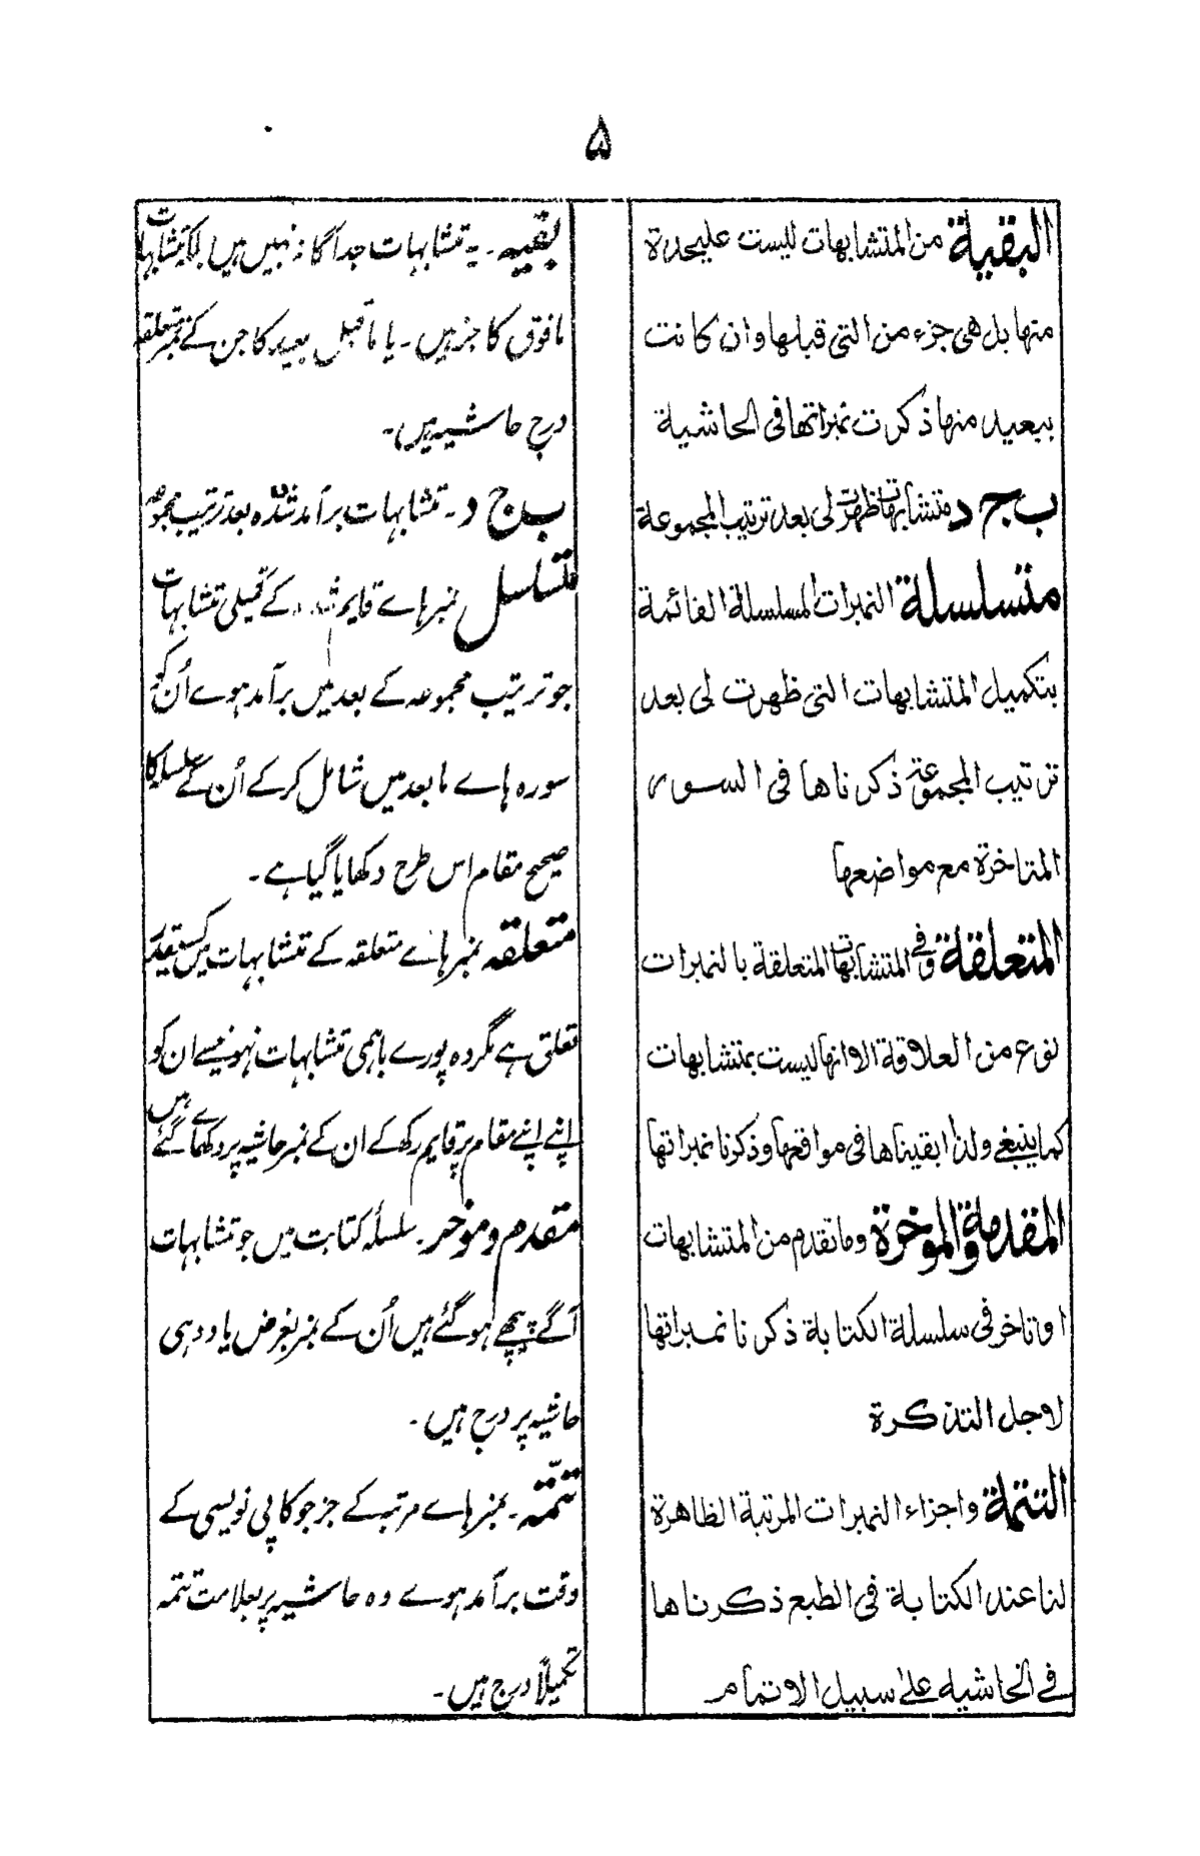 ۵
البقية من المتشابهات ليست عليحدة
منها بل هى جزء من التى قبلها وان كانت
ببعيد منها ذكرت نمبراتها فى الحاشية
ب ج د متشابهات ظهرت لى بعد ترتيب المجموعة
متسلسلة النمبرات المسلسلة القائمة
بتكميل المتشابهات التى ظهرت لى بعد
ترتيب المجموعة ذكرناها فى السور
المتاخرة مع مواضعها
المتعلقة وفى المتشابهات المتعلقة بالنمبرات
نوع من العلاقة الا انها ليست بمتشابهات
كما ينبغى ولذا ابقيناها فى مواقعها وذكرنا نمبراتها
المقدمة والموخرة وما تقدم من المتشابهات
او تاخر فى سلسلة الكتابة ذكرنا نمبراتها
لاجل التذكرة
التتمة واجزاء النمبرات المرتبة الظاهرة
لنا عند الكتابة فى الطبع ذكرناها
فى الحاشيه على سبيل الاتمام
بقیہ ۔ یہ تشابہات جداگانہ نہیں ہیں بلکہ تشابہات
مافوق کا جز ہیں ۔ یا ماقبل بعید کا جن کے نمبر متعلقہ
درج حاشیہ ہیں ۔
ب ج د ۔ تشابہات برآمد شدہ بعد ترتیب مجموعہ
متسلسل نمبرہاے قایم شدہ کے تکمیلی تشابہات
جو ترتیب مجموعہ کے بعد میں برآمد ہوے اُن کو
سورہ ہاے مابعد میں شامل کر کے اُن کے سلسلہ کا
صحیح مقام اس طرح دکھایا گیا ہے ۔
متعلقہ نمبرہاے متعلقہ کے تشابہات میں کسیقدر
تعلق ہے مگر وہ پورے باہمی تشابہات نہونیسے ان کو
اپنے اپنے مقام پر قایم رکھ کے ان کے نمبر حاشیہ پر دکھاے گئے ہیں
مقدم وموخر ۔ سلسلۂ کتابت میں جو تشابہات
آگے پیچھے ہو گئے ہیں اُن کے نمبر بغرض یاد دہی
حاشیہ پر درج ہیں ۔
تتمّہ ۔ نمبرہاے مرتبہ کے جز جو کاپی نویسی کے
وقت برآمد ہوے وہ حاشیہ پر بعلامت تتمہ
تکمیلاً درج ہیں ۔